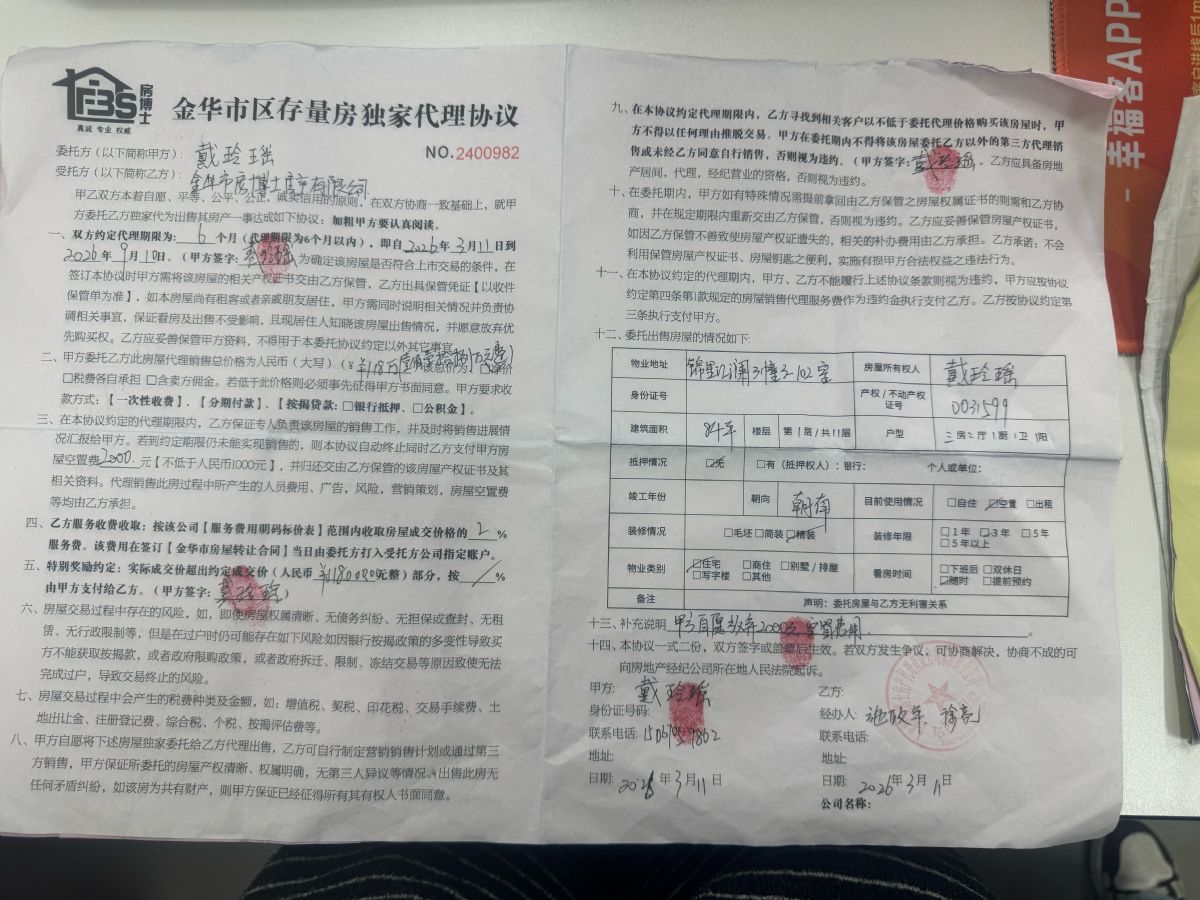 房博士
FBS
真诚 专业 权威
金华市区存量房独家代理协议
NO.2400982
委托方（以下简称甲方）：戴玲瑶
受托方（以下简称乙方）：金华市房博士房产有限公司
甲乙双方本着自愿、平等、公平、公正、诚实信用的原则，在双方协商一致基础上，就甲
方委托乙方独家代为出售其房产一事达成如下协议：加粗甲方要认真阅读。
一、双方约定代理期限为：6个月（代理期限为6个月以内），即自2026年3月11日到
2026年9月10日。（甲方签字：戴玲瑶 为确定该房屋是否符合上市交易的条件，在
签订本协议时甲方需将该房屋的相关产权证书交由乙方保管，乙方出具保管凭证【以收件
保管单为准】，如本房屋尚有租客或者亲戚朋友居住，甲方需同时说明相关情况并负责协
调相关事宜，保证看房及出售不受影响，且现居住人知晓该房屋出售情况，并愿意放弃优
先购买权。乙方应妥善保管甲方资料，不得用于本委托协议约定以外其它事宜。
二、甲方委托乙方此房屋代理销售总价格为人民币（大写）（￥118万
□税费各自承担 □含卖方佣金。若低于此价格则必须事先征得甲方书面同意。甲方要求收
款方式：【一次性收费】、【分期付款】、【按揭贷款：□银行抵押、□公积金】。
三、在本协议约定的代理期限内，乙方保证专人负责该房屋的销售工作，并及时将销售进展情
况汇报给甲方。若到约定期限仍未能实现销售的，则本协议自动终止同时乙方支付甲方房
屋空置费2000.元【不低于人民币1000元】，并归还交由乙方保管的该房屋产权证书及其
相关资料。代理销售此房过程中所产生的人员费用、广告，风险，营销策划，房屋空置费
等均由乙方承担。
四、乙方服务收费收取：按该公司【服务费用明码标价表】范围内收取房屋成交价格的2%
服务费。该费用在签订【金华市房屋转让合同】当日由委托方打入受托方公司指定账户。
五、特别奖励约定：实际成交价超出约定成交价（人民币￥1180000元整）部分，按/%
由甲方支付给乙方。（甲方签字：戴玲瑶）
六、房屋交易过程中存在的风险，如，即使房屋权属清晰、无债务纠纷、无担保或查封、无租
赁、无行政限制等；但是在过户时仍可能存在如下风险如因银行按揭政策的多变性导致买
方不能获取按揭款，或者政府限购政策，或者政府拆迁、限制、冻结交易等原因致使无法
完成过户，导致交易终止的风险。
七、房屋交易过程中会产生的税费种类及金额，如；增值税、契税、印花税、交易手续费、土
地出让金、注册登记费、综合税、个税、按揭评估费等。
八、甲方自愿将下述房屋独家委托给乙方代理出售，乙方可自行制定营销销售计划或通过第三
方销售，甲方保证所委托的房屋产权清晰、权属明确，无第三人异议等情况。出售此房无
任何矛盾纠纷，如该房为共有财产，则甲方保证已经征得所有其有权人书面同意。
九、在本协议约定代理期限内，乙方寻找到相关客户以不低于委托代理价格购买该房屋时，甲
方不得以任何理由推脱交易。甲方在委托期内不得将该房屋委托乙方以外的第三方代理销
售或未经乙方同意自行销售，否则视为违约。（甲方签字：戴玲瑶。乙方应具备房地
产居间，代理，经纪营业的资格，否则视为违约。
十、在委托期内，甲方如有特殊情况需提前拿回由乙方保管之房屋权属证书的则需和乙方协
商，并在规定期限内重新交由乙方保管，否则视为违约。乙方应妥善保管房屋产权证书，
如因乙方保管不善致使房屋产权证遗失的，相关的补办费用由乙方承担。乙方承诺：不会
利用保管房屋产权证书、房屋钥匙之便利，实施有损甲方合法权益之违法行为。
十一、在本协议约定的代理期内，甲方、乙方不能履行上述协议条款则视为违约，甲方应按协议
约定第四条第1款规定的房屋销售代理服务费作为违约金执行支付乙方。乙方按协议约定第
三条执行支付甲方。
十二、委托出售房屋的情况如下：
物业地址 锦里江澜3幢3-102室 房屋所有权人 戴玲瑶
身份证号 产权/不动产权证号 0031599
建筑面积 84平 楼层 第1层/共11层 户型 三房2厅1厨1卫1阳
抵押情况 □无 □有（抵押权人）：银行： 个人或单位：
竣工年份 朝向 朝南 目前使用情况 □自住 □空置 □出租
装修情况 □毛坯 □简装 □精装 装修年限 □1年 □3年 □5年
□5年以上
物业类别 □住宅 □商住 □别墅/排屋 看房时间 □下班后 □双休日
□写字楼 □其他 □随时 □提前预约
备注 声明：委托房屋与乙方无利害关系
十三、补充说明 甲方自愿放弃2000元空置费用。
十四、本协议一式二份，双方签字或盖章后生效。若双方发生争议，可协商解决，协商不成的可
向房地产经纪公司所在地人民法院起诉。
甲方：戴玲瑶
身份证号码：
联系电话：
地址：
日期：2026年3月11日
乙方：
经办人：
联系电话：
地址：
日期：2026年3月11日
公司名称：
幸福客APP